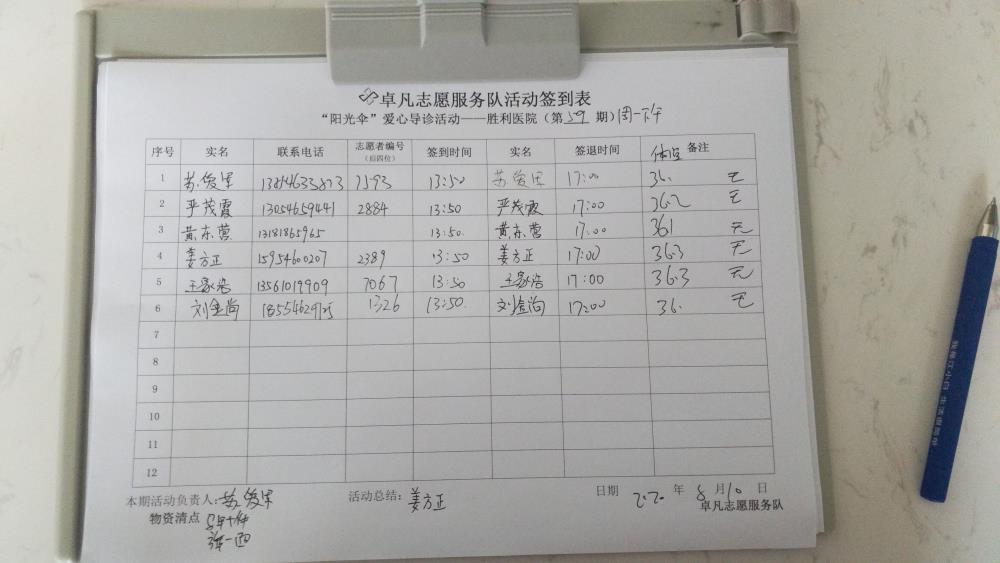 卓凡志愿服务队活动签到表
“阳光伞”爱心导诊活动——胜利医院（第59期）周一下午
序号 实名 联系电话 志愿者编号（后四位） 签到时间 实名 签退时间 体温 备注
1 苏俊军 7593 13:50 苏俊军 17:00 36. 无
2 严茂霞 13054659441 2884 13:50 严茂霞 17:00 36.2 无
3 黄东营 13181865965 13:50. 黄东营 17:00 361 无
4 姜方正 15954600207 2389 13:50 姜方正 17:00 36.3 无
5 王家浩 13561019909 7067 13:50 王家浩 17:00 36.3 无
6 刘金尚 1326 13:50. 刘金尚 17:00 36. 无
7
8
9
10
11
12
本期活动负责人: 苏俊军 活动总结: 姜方正 日期 2020 年 8 月 10 日
物资清点 卓凡志愿服务队